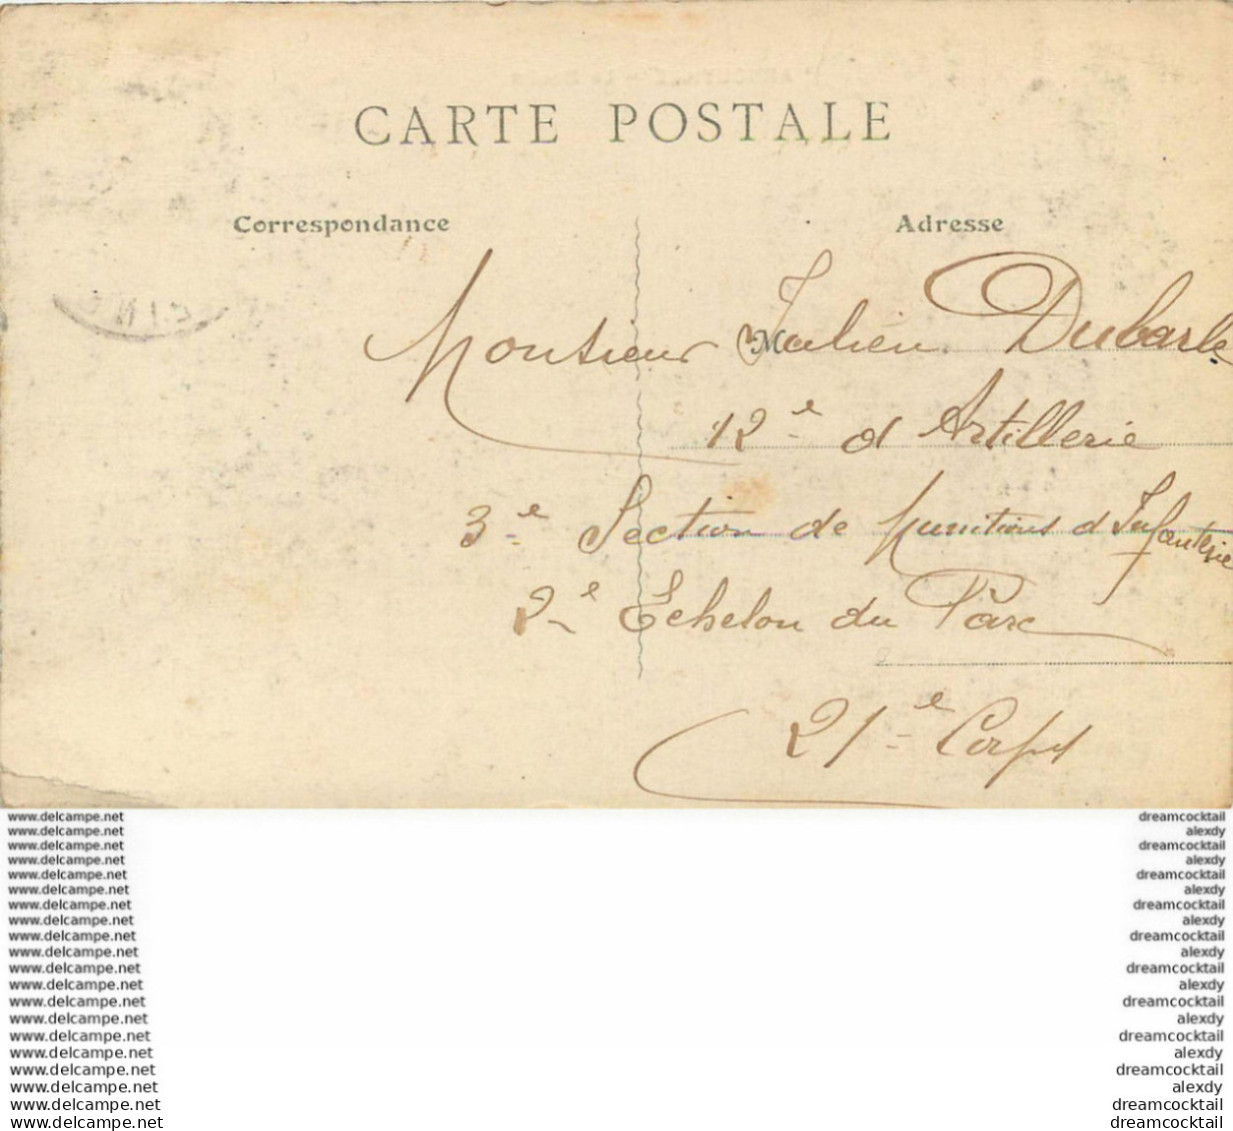 CARTE POSTALE
Correspondance
Adresse
Monsieur Julien Dubarle
12e d'Artillerie
3e Section de Munitions d'Infanterie
2e Échelon du Parc
21e Corps
www.delcampe.net
www.delcampe.net
www.delcampe.net
www.delcampe.net
www.delcampe.net
www.delcampe.net
www.delcampe.net
www.delcampe.net
www.delcampe.net
www.delcampe.net
www.delcampe.net
www.delcampe.net
www.delcampe.net
www.delcampe.net
www.delcampe.net
www.delcampe.net
www.delcampe.net
www.delcampe.net
www.delcampe.net
www.delcampe.net
dreamcocktail
alexdy
dreamcocktail
alexdy
dreamcocktail
alexdy
dreamcocktail
alexdy
dreamcocktail
alexdy
dreamcocktail
alexdy
dreamcocktail
alexdy
dreamcocktail
alexdy
dreamcocktail
alexdy
dreamcocktail
dreamcocktail